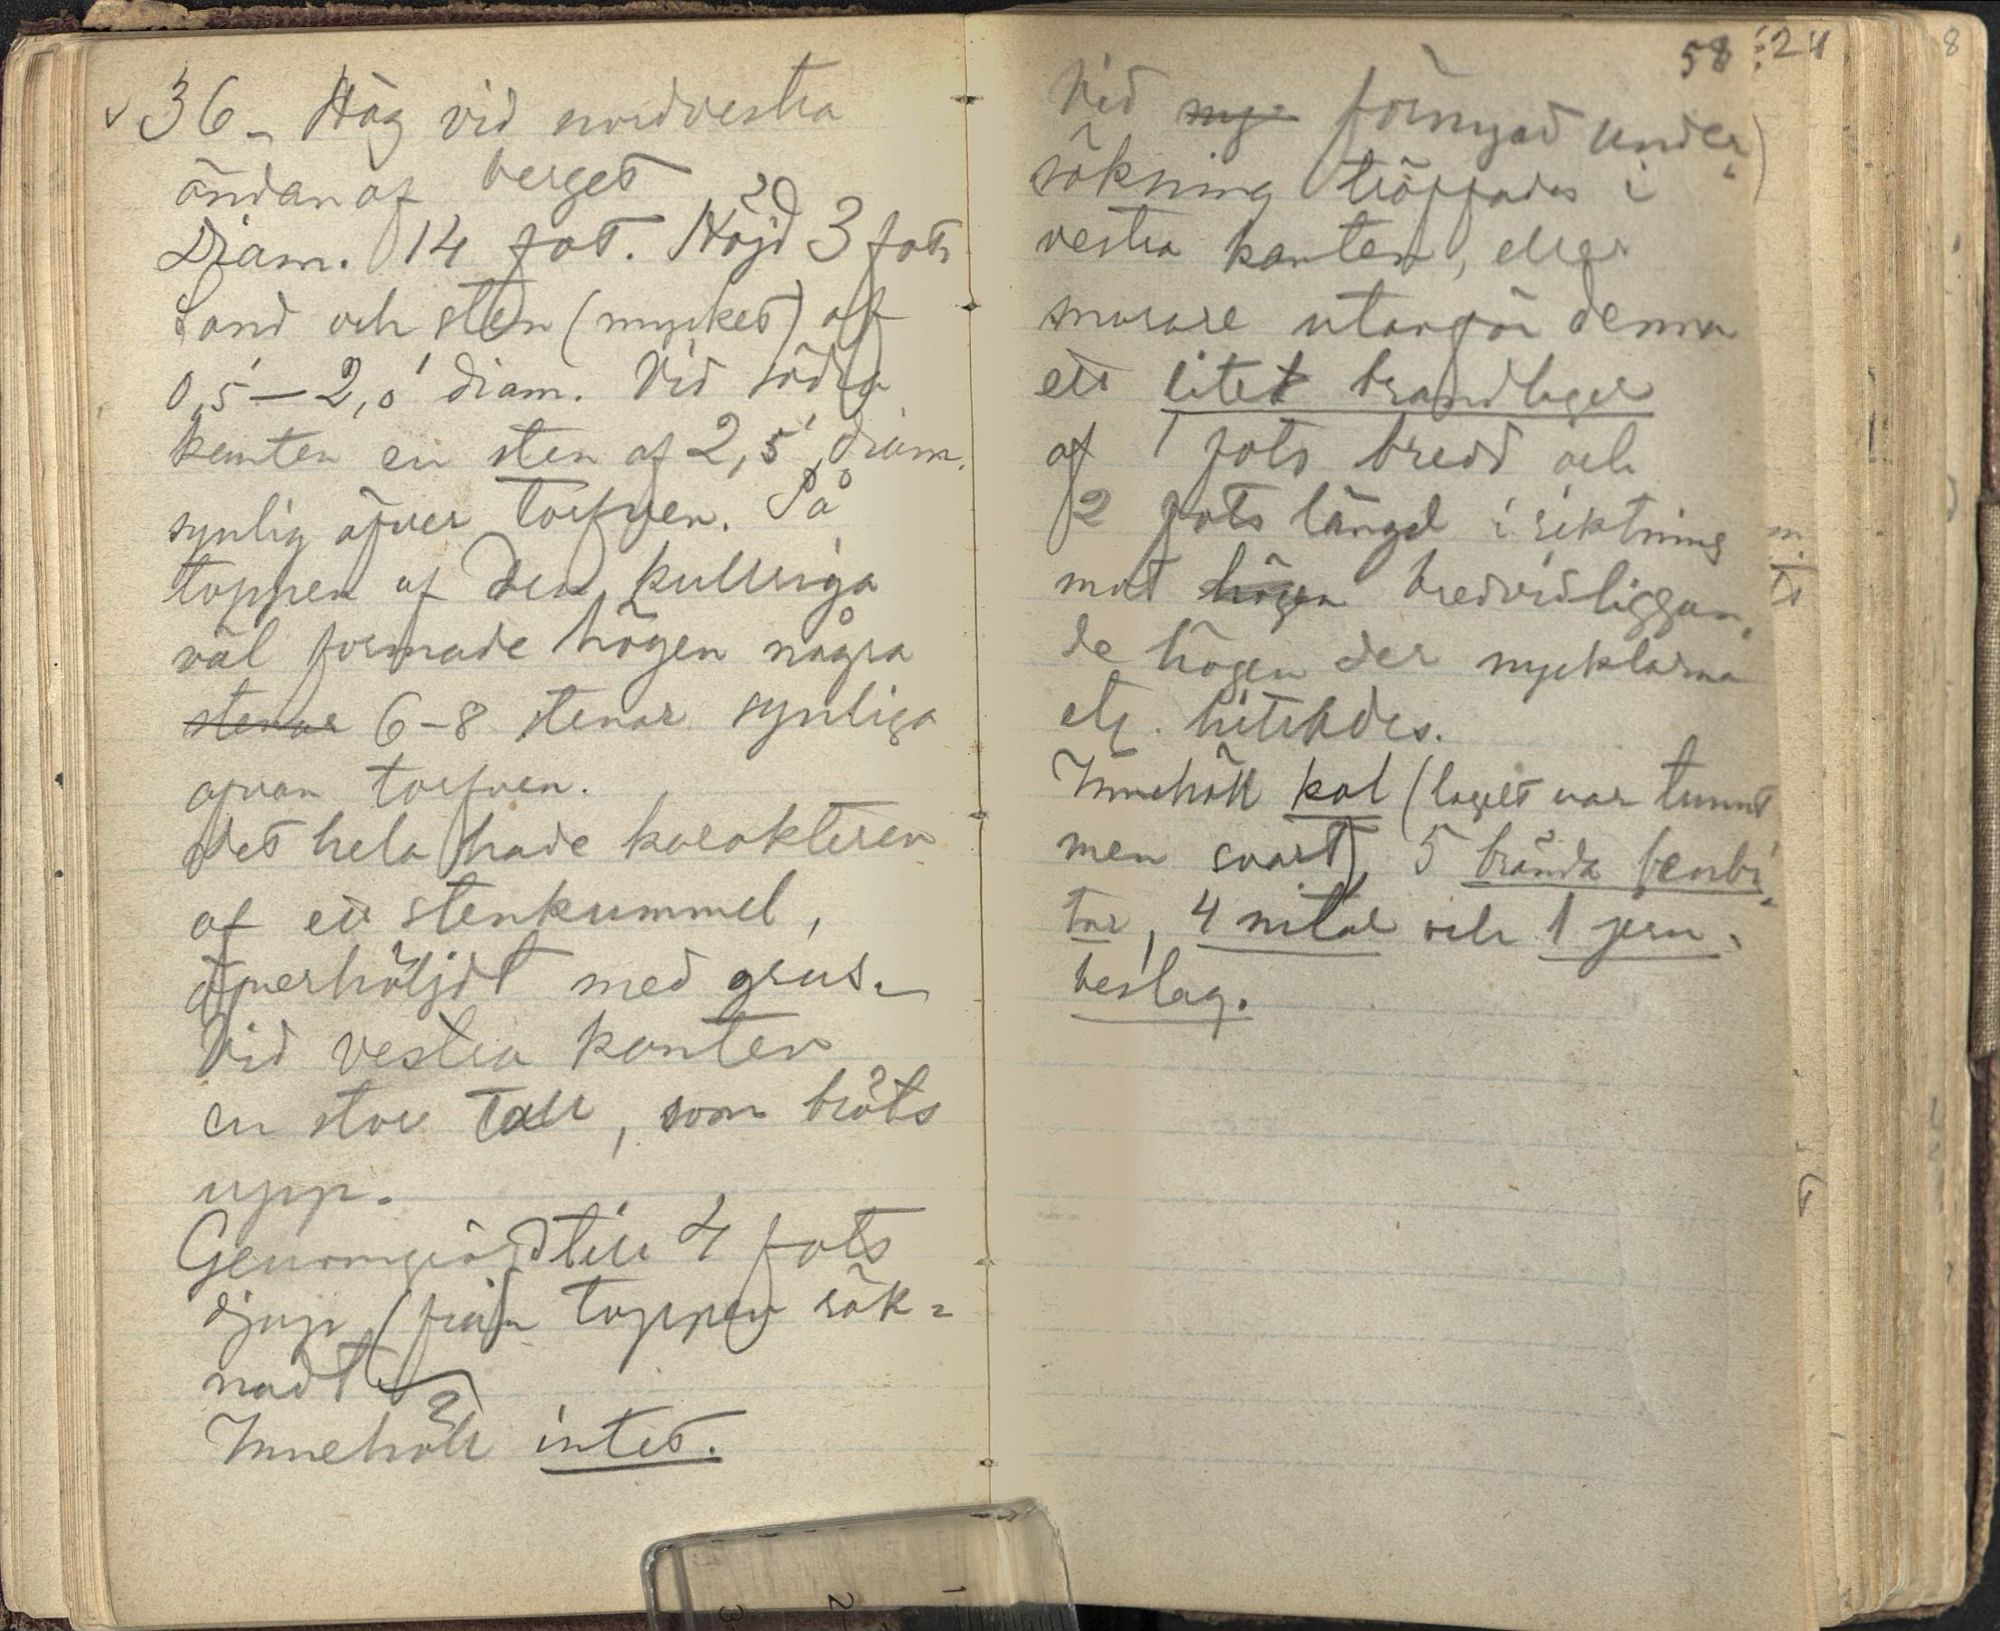 36 - Hög vid nordvestra
ändan af berget
Diam. 14 fot. Höjd 3 fot.
Sand och sten (mycket) af
0,5' — 2,0' diam. Vid södra
kanten en sten af 2,5' diam.
synlig öfver torfven. På
toppen af den kullriga
väl formade högen några
stenar 6-8 stenar synliga
ofvan torfven.
Det hela hade karakteren
af ett stenkummel,
öfverhöljdt med grus.
Vid vestra kanten
en stor tall, som bröts
upp.
Genomgräfd till 4 fots
djup (från toppen räk=
nadt)
Innehöll intet.
58
Vid ny förnyad under-
sökning träffades i
vestra kanten, eller
snarare utanför denna
ett litet brandlager
af 1 fots bredd och
2 fots längd i riktning
mot högen bredvidliggan-
de högen der nycklarna
etc. hittades.
Innehöll kol (lagret var tunnt
men svart), 5 brända benbi-
tar, 4 nitar och 1 jern-
beslag.